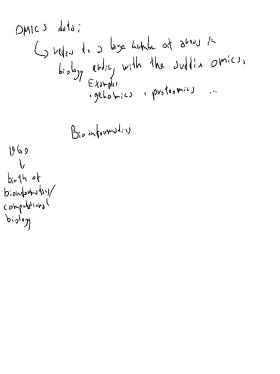 OMICS data;
refers to a large number of areas in
biology ending with the suffix omics.
Examples
• genomics • proteomics ...
Bioinformatics
1960
birth of
bioinformatics/
computational
biology